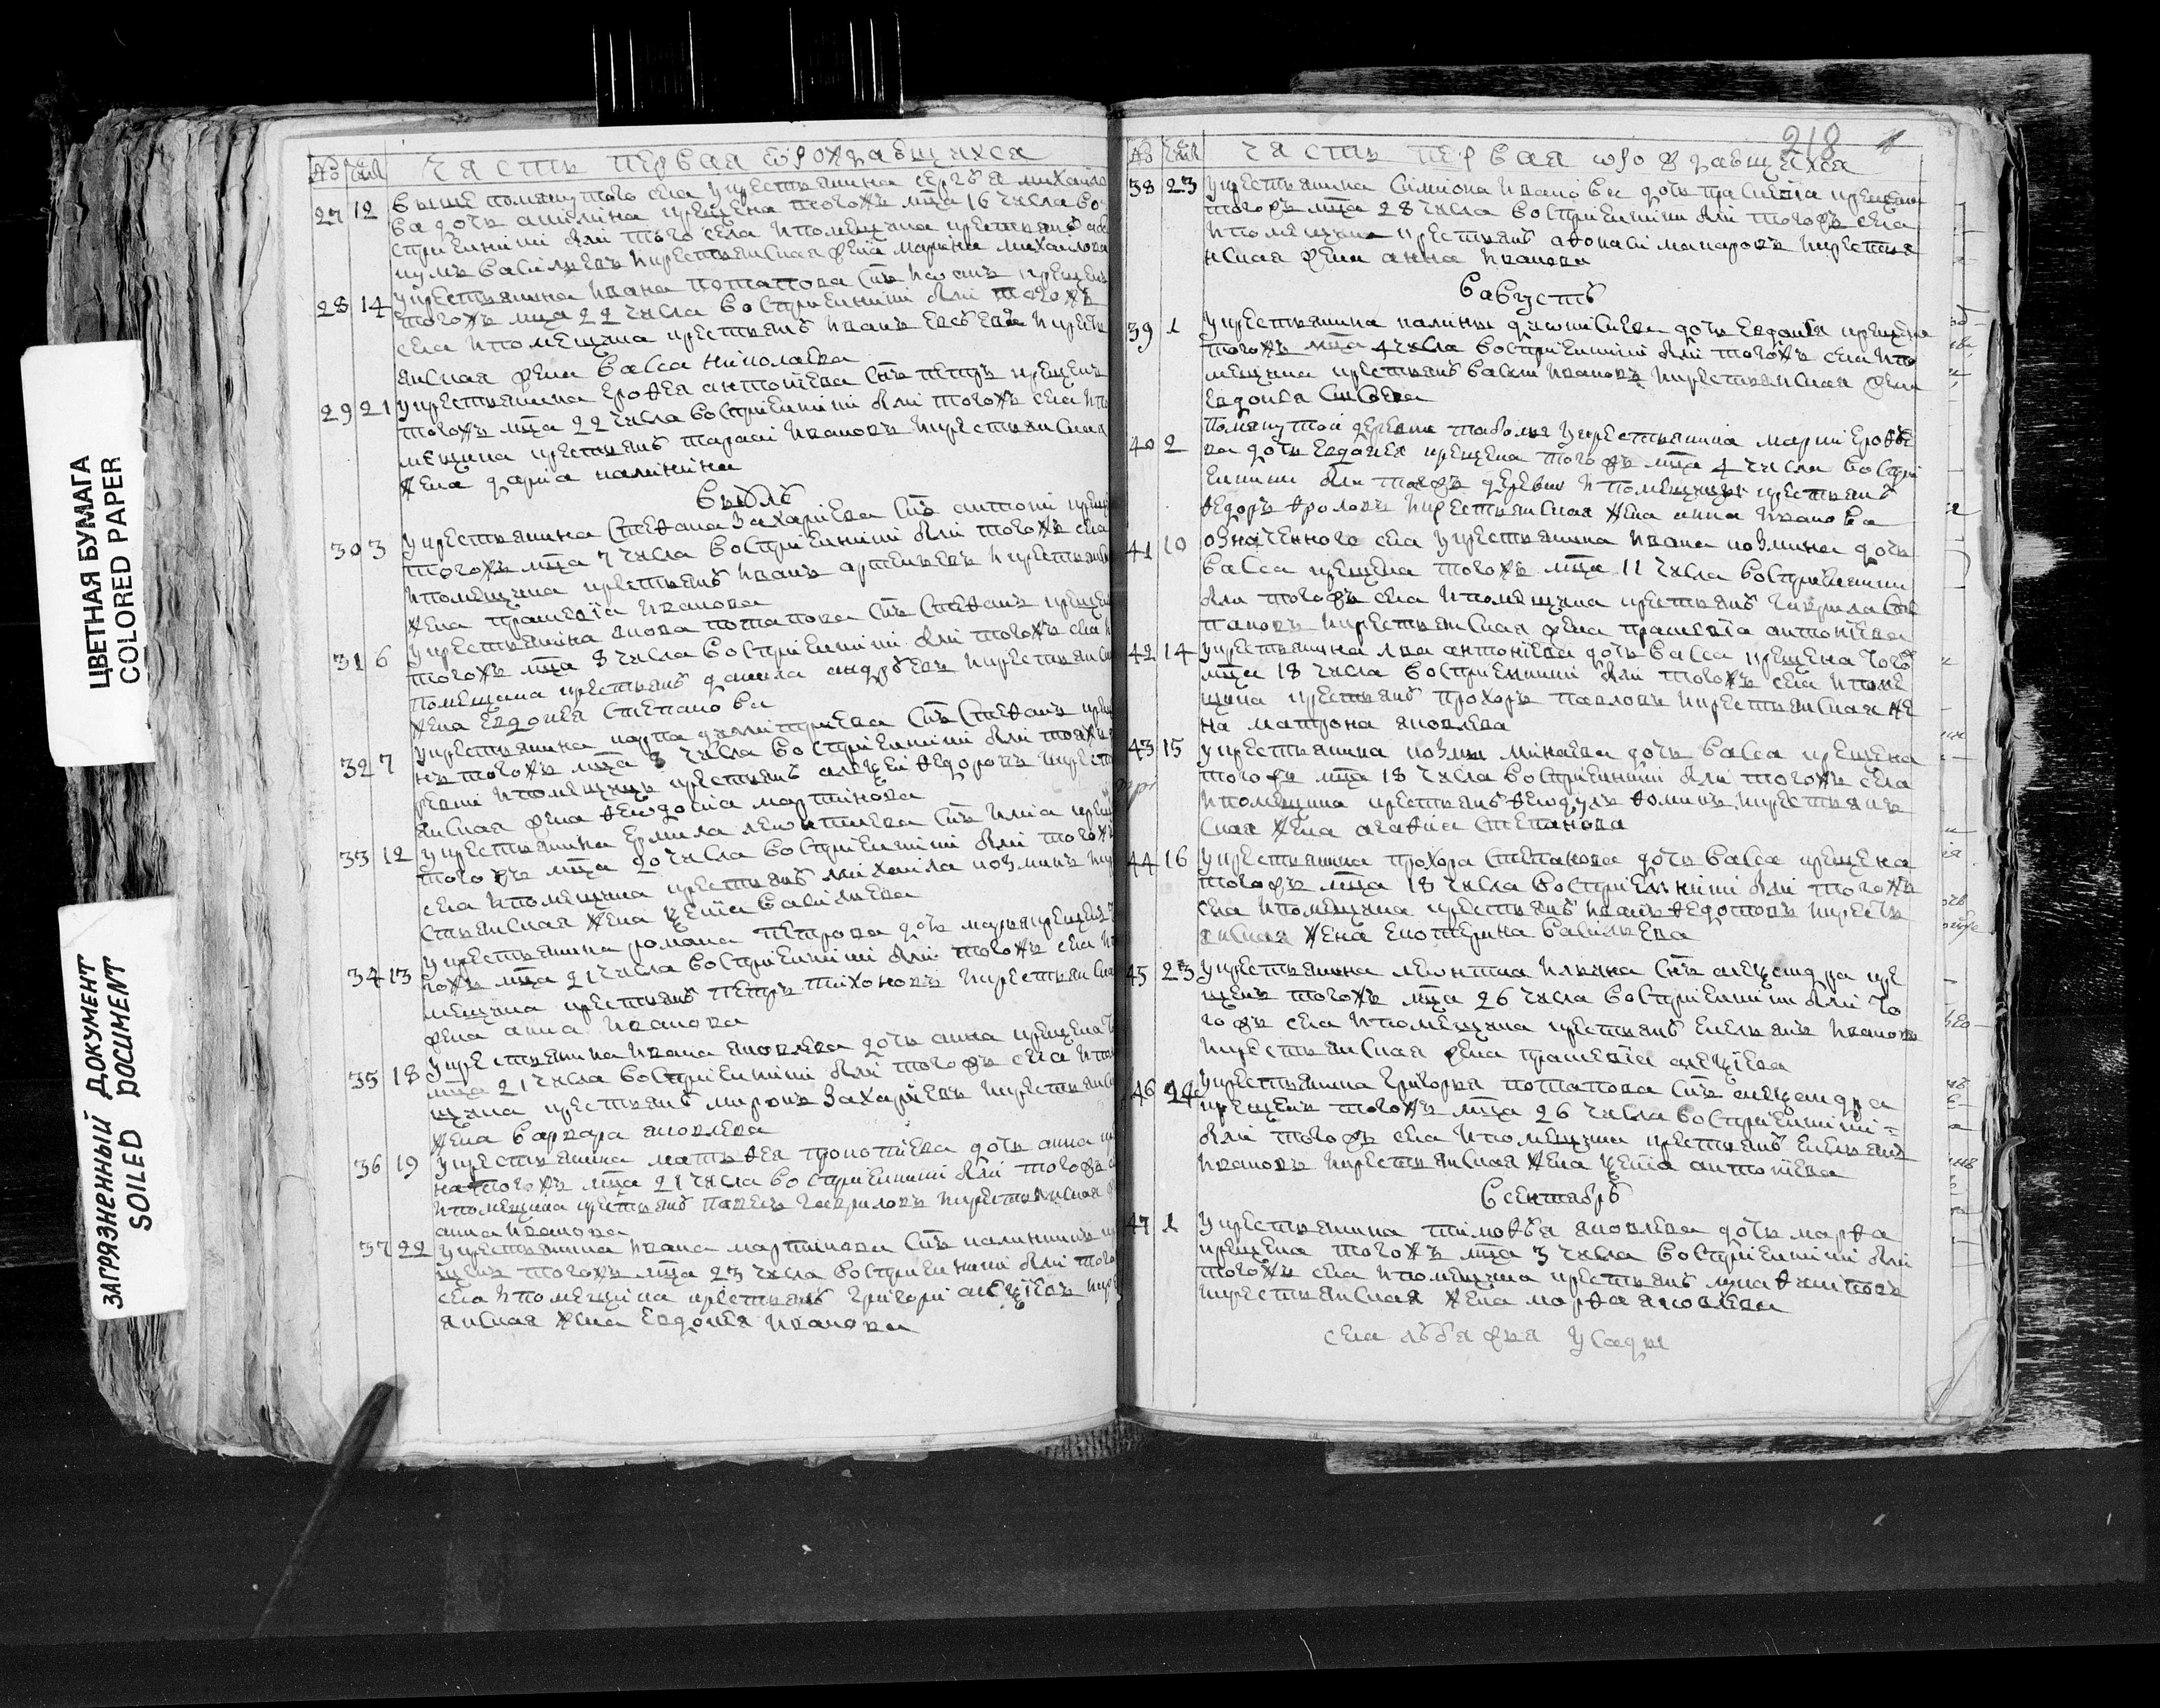 ЦВЕТНАЯ БУМАГА
COLORED PAPER
ЗАГРЯЗНЕННЫЙ ДОКУМЕНТ
SOILED DOCUMENT
часть первая ѡрождавшихся
27 12 выше помянутого села у крестьянина сергѣя михаило
ва дочь крещена тогожъ мца 16 числа во
спрiемники были того села и помещика крестьянѣ
васильевъ и крестьянская жена марина михаилова
28 14 у крестьянина ивана потапова снъ крещенъ
тогожъ мца 22 числа воспрiемники были тогожъ
села и помещика крестьянѣ иванъ евсѣевъ и кресть
янская жена васса николаева
29 21 у крестьянина ерофея антонiева снъ петръ крещенъ
тогожъ мца 22 числа воспрiемники были тогожъ села и по
мещика крестьянѣ тарасi ивановъ и крестьянская
жена дарiа калинина
30 3 у крестьянина стефана захарiева снъ антонi
тогожъ мца 7 числа воспрiемники были тогожъ села
и помещика крестьянѣ иванъ артемьевъ и
жена праскевiа иванова
31 6 у крестьянина якова потапова снъ стефанъ
тогожъ мца 8 числа воспрiемники были тогожъ села
помещика крестьянѣ данила андрѣевъ и
жена евдокея степанова
32 7 у крестьянина карпа димитриева снъ стефанъ
нъ тогожъ мца 8 числа воспрiемники были
ревни и помещика крестьянѣ алеѯеi федоровъ и
янская жена феѡдосiа мартинова
33 12 у крестьянина ермила леѡнтиева снъ илiа
тогожъ мца 20 числа воспрiемники были тогожъ
села и помещика крестьянѣ михаила козминъ и
стьянская жена ѯенiа васильева
34 13 у крестьянина романа петрова дочь марья крещена
гожъ мца 21 числа воспрiемники были тогожъ села
мещика крестьянѣ петръ тихоновъ и крестьянская
жена анна иванова
35 18 у крестьянина ивана яковлева дочь анна крещена
мца 21 числа воспрiемники были тогожъ села и
щика крестьянѣ миронъ захарiевъ и
жена варвара яковлева
36 19 у крестьянина матьфея прокопiева дочь анна
на тогожъ мца 21 числа воспрiемники были тогожъ
и помещика крестьянѣ павелъ гавриловъ и крестьянская
анна иванова
37 22 у крестьянина ивана мартинова снъ калинникъ
щенъ тогожъ мца 23 числа воспрiемники были того
села и помещика крестьянѣ григорi алеѯiевъ и
янская жена евдокея иванова
218
часть первая ѡрождавшихся
38 23 у крестьянина симiона иванова дочь праскевiа крещена
тогожъ мца 28 числа воспрiемники были тогожъ села
и помещика крестьянѣ афонасi макаровъ и крестья
нская жена анна иванова
вавгустѣ
39 1 у крестьянина калины диѡнисиева дочь евдокея крещена
тогожъ мца 4 числа воспрiемники были тогожъ села и по
мещика крестьянѣ васили ивановъ и крестьянская жена
евдокея
40 2 помянутой деревни у крестьянина ерофѣе
ва дочь евдокея крещена тогожъ мца 4 числа воспри
емники были тоежъ деревни и помещика крестьянѣ
федоръ фроловъ и крестьянская жена анна иванова
41 10 означенного села у крестьянина ивана козмина дочь
васса крещена тогожъ мца 11 числа воспрiемники
были тогожъ села и помещика крестьянѣ гаврила сте
пановъ и крестьянская жена праскевiа антонiева
42 14 у крестьянина лва антонiева дочь васса крещена того
мца 18 числа воспрiемники были тогожъ села и поме
щика крестьянѣ прохоръ павловъ и крестьянская же
на матрона яковлева
43 15 у крестьянина козмы минаева дочь васса крещена
тогожъ мца 18 числа воспрiемники были тогожъ села
и помещика крестьянѣ феѡдулъ фоминъ и крестьянъ
ская жена агафiа степанова
44 16 у крестьянина прохора степанова дочь васса крещена
тогожъ мца 18 числа воспрiемники были тогожъ
села и помещика крестьянѣ иванъ федотовъ и кресть
янская жена екатерина васильева
45 23 у крестьянина леѡнтиа илъина снъ алеѯандра кре
щенъ тогожъ мца 26 числа воспрiемники были то
гожъ села и помещика крестьянѣ емельянъ ивановъ
и крестьянская жена праскевiа алеѯiева
46 24 у крестьянина григорья потапова снъ алеѯандра
крещенъ тогожъ мца 26 числа воспрiемники
были тогожъ села и помещика крестьянѣ емельянъ
ивановъ и крестьянская жена ѯенiа антонiева
всентябрѣ
47 1 у крестьянина тимофѣя яковлева дочь марфа
крещена тогожъ мца 3 числа воспрiемники были
тогожъ села и помещика крестьянѣ лука
и крестьянская жена марфа яковлева
села усады